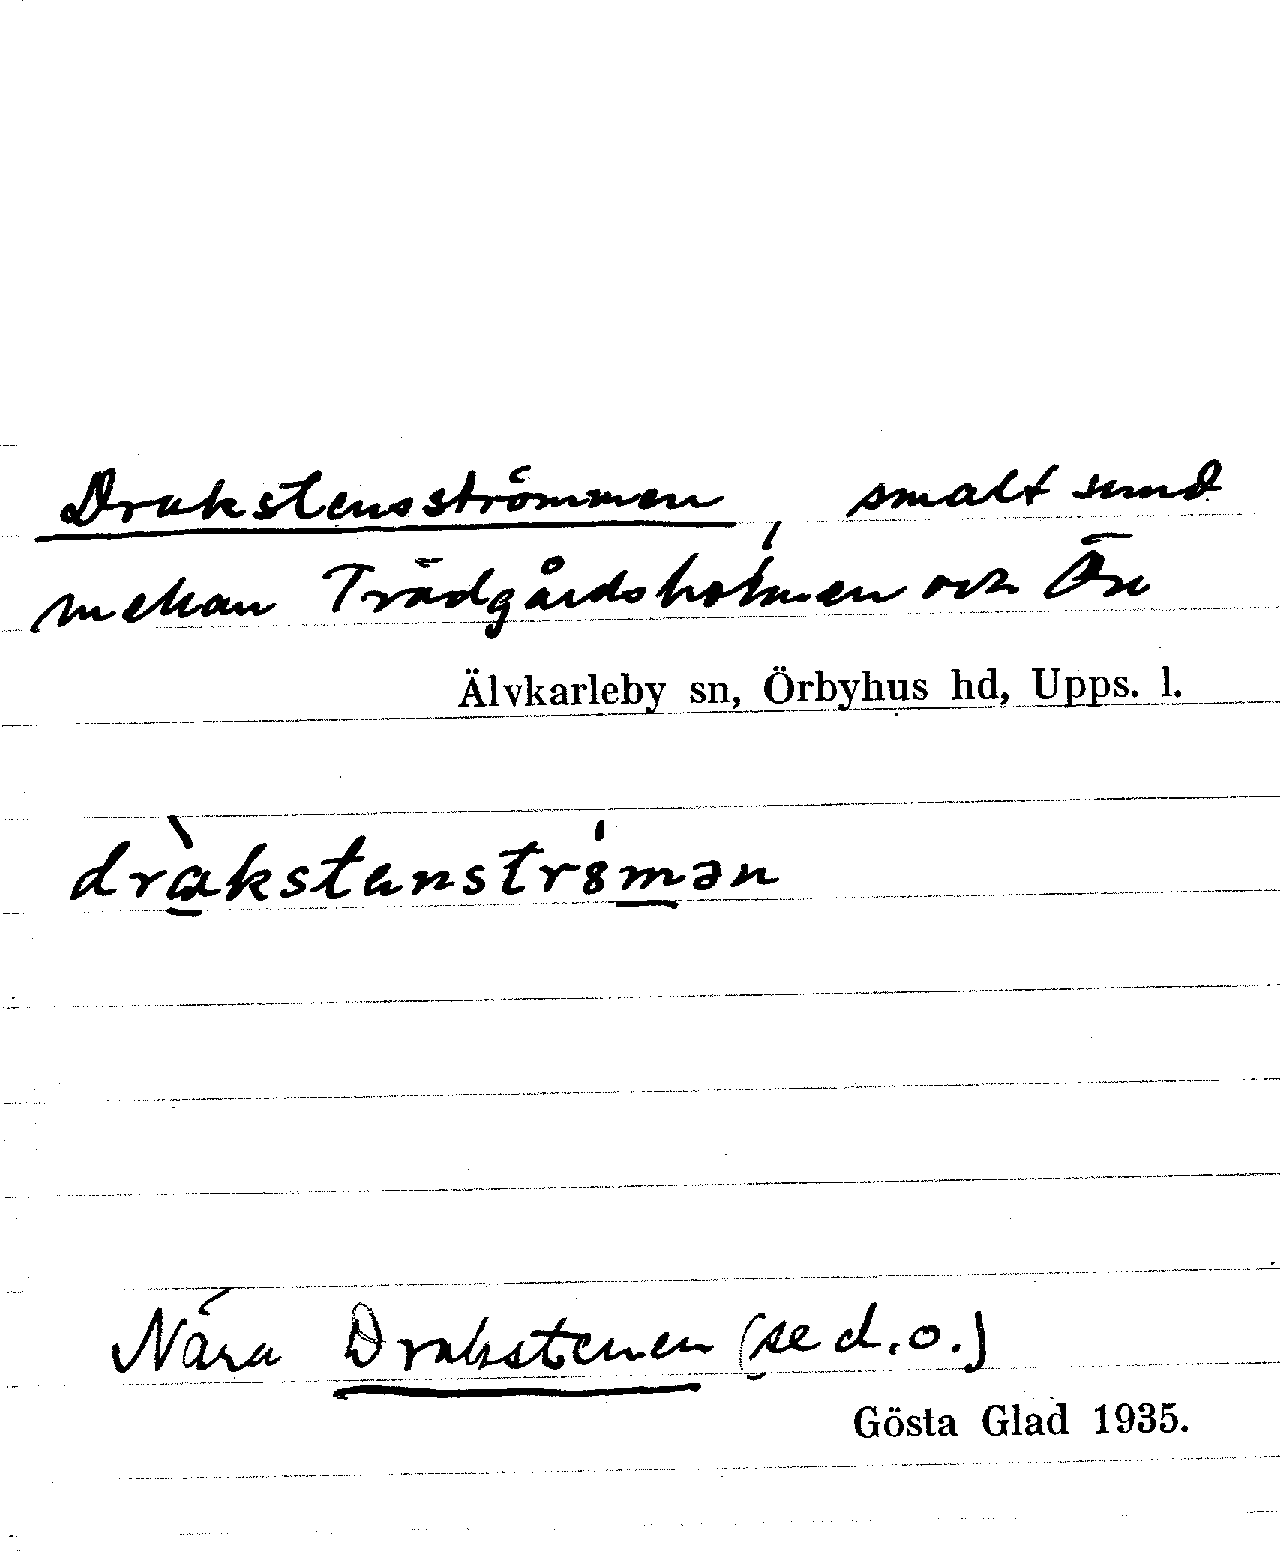 Drakstensströmmen, smalt sund
mellan Trädgårdsholmen och Ön
Älvkarleby sn, Örbyhus hd, Upps. l.
dràkstenström̲ən
Nära Drakstenen (se d. o.)
Gösta Glad 1935.